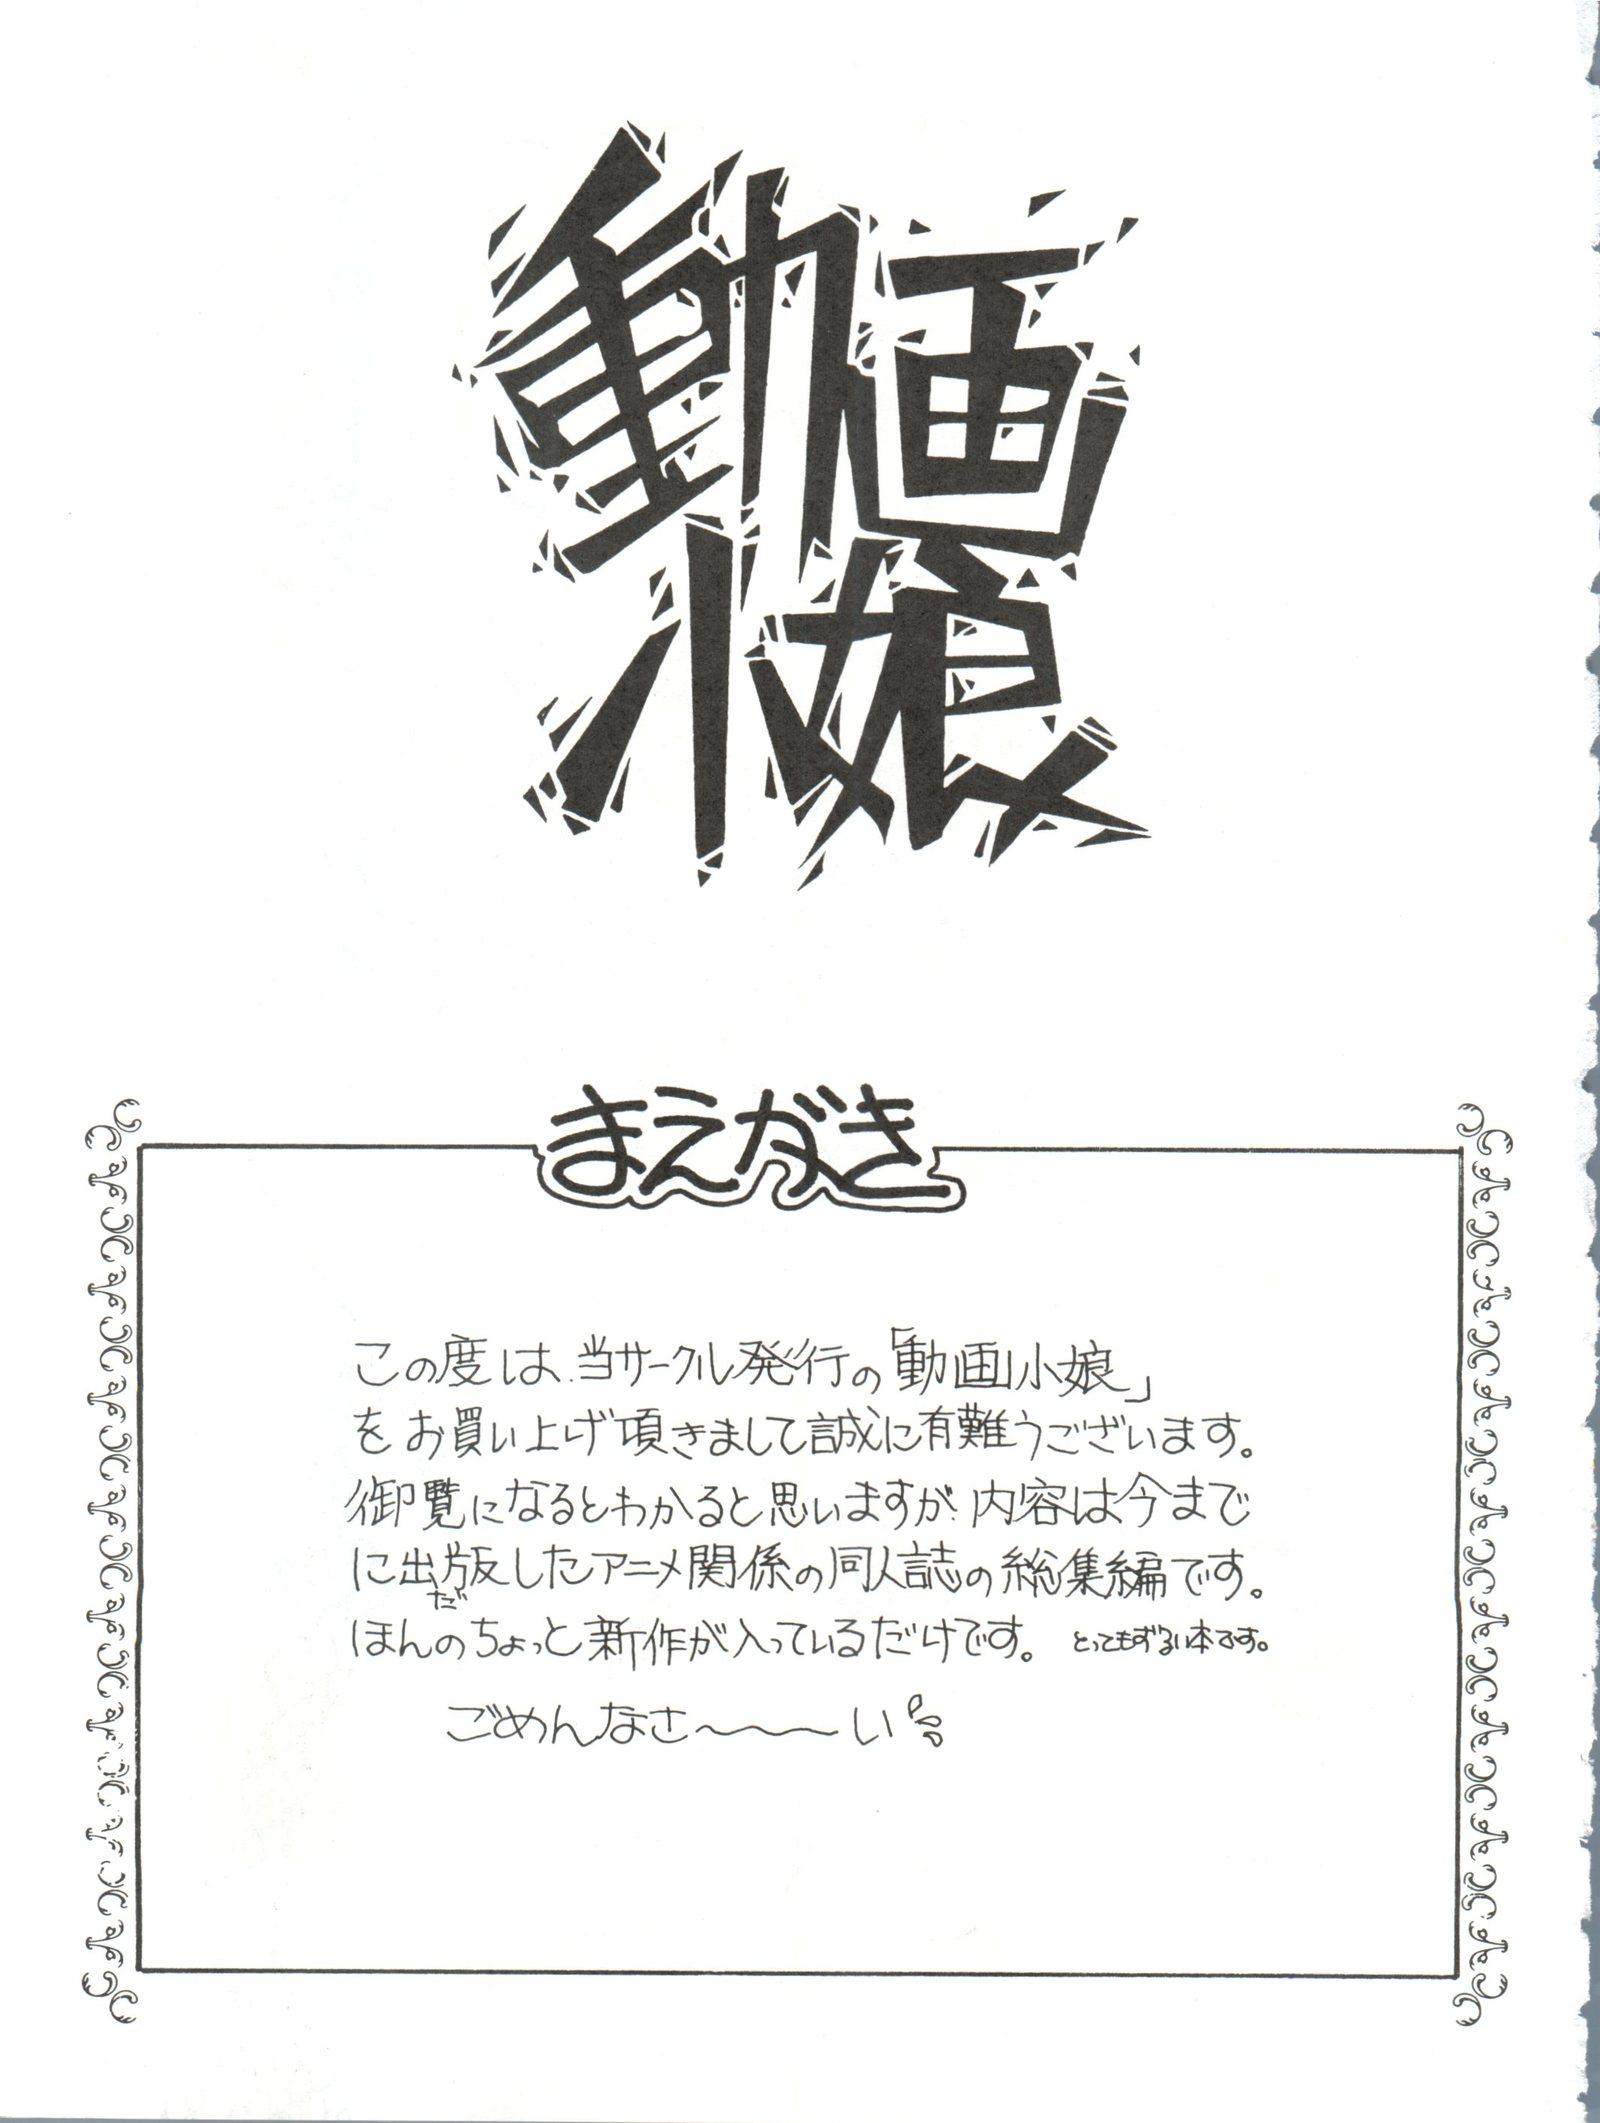 動画
小娘
まえがき
この度は、当サークル発行の「動画小娘」
をお買い上げ頂きまして誠に有難うございます。
御覧になるとわかると思いますが、内容は今まで
に出版したアニメ関係の同人誌の総集編です。
ほんのちょっとだ新作が入っているだけです。 とってもずるい本です。
ごめんなさ〜〜〜い